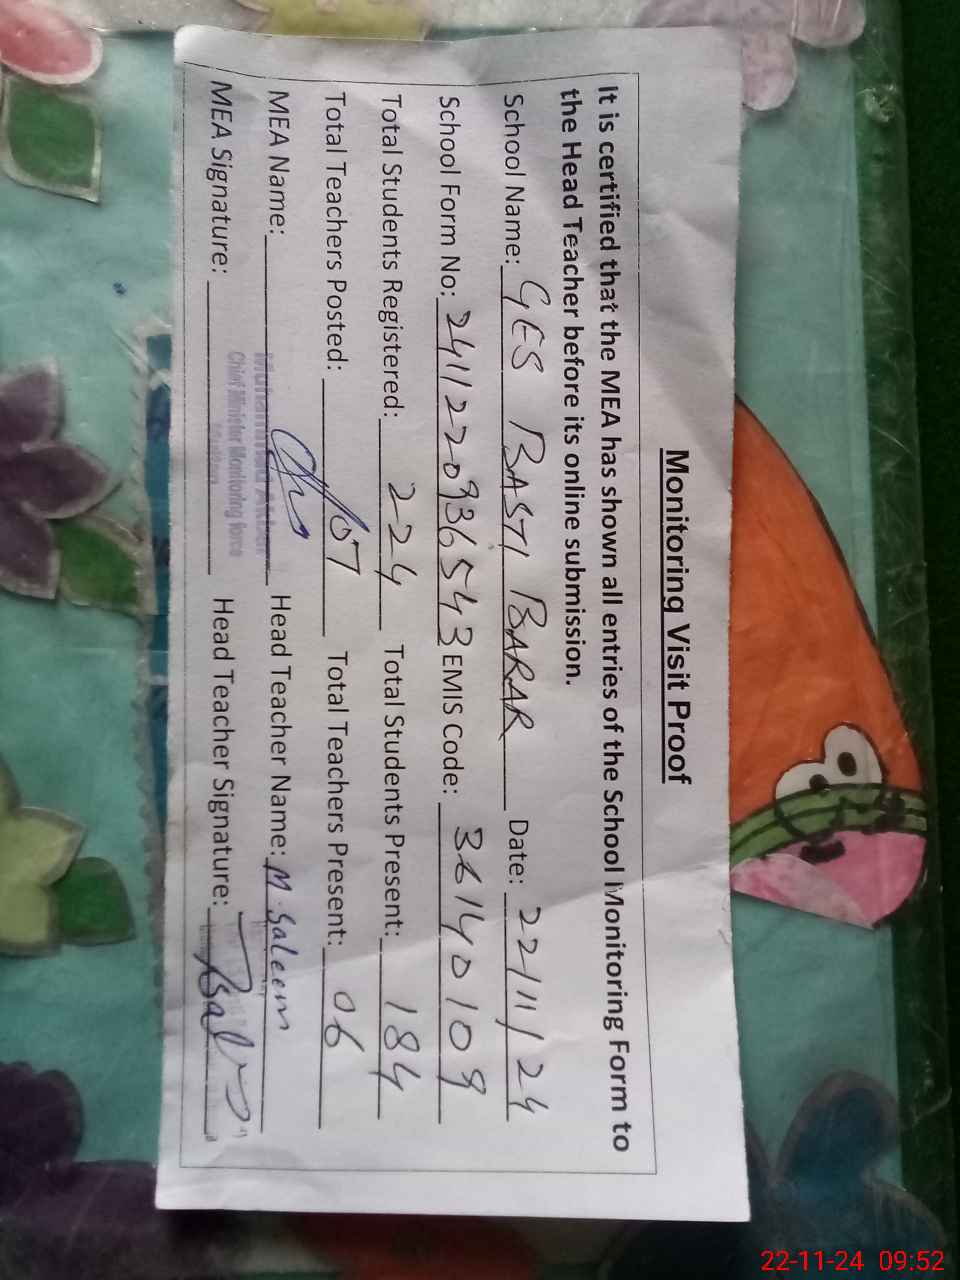 Monitoring Visit Proof
It is certified that the MEA has shown all entries of the School Monitoring Form to
the Head Teacher before its online submission.
School Name: GES BASTI BARAR Date: 22/11/24
School Form No: 2411220936543 EMIS Code: 36140109
Total Students Registered: 224 Total Students Present: 184
Total Teachers Posted: 07 Total Teachers Present: 06
MEA Name: Muhammad Head Teacher Name: M. Saleem
MEA Signature: Chief Minister Monitoring force Head Teacher Signature:
22-11-24 09:52